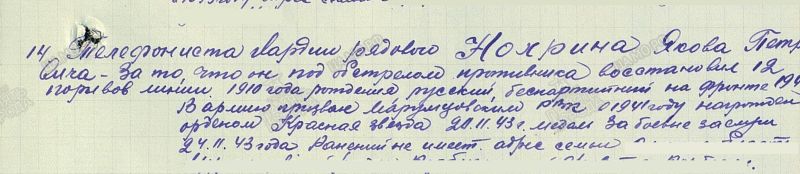 14. Телефониста гвардии рядового Нохрина Якова Петр
овича - За то, что он под обстрелом противника восстановил 12
порывов линии. 1910 года рождения русский, беспартийный на фронте 194
В армию призван РВК 1941 году награжден
орденом Красная звезда 20.11.43 г. медаль За боевые заслуги
24.11.43 года Ранений не имеет. адрес семьи